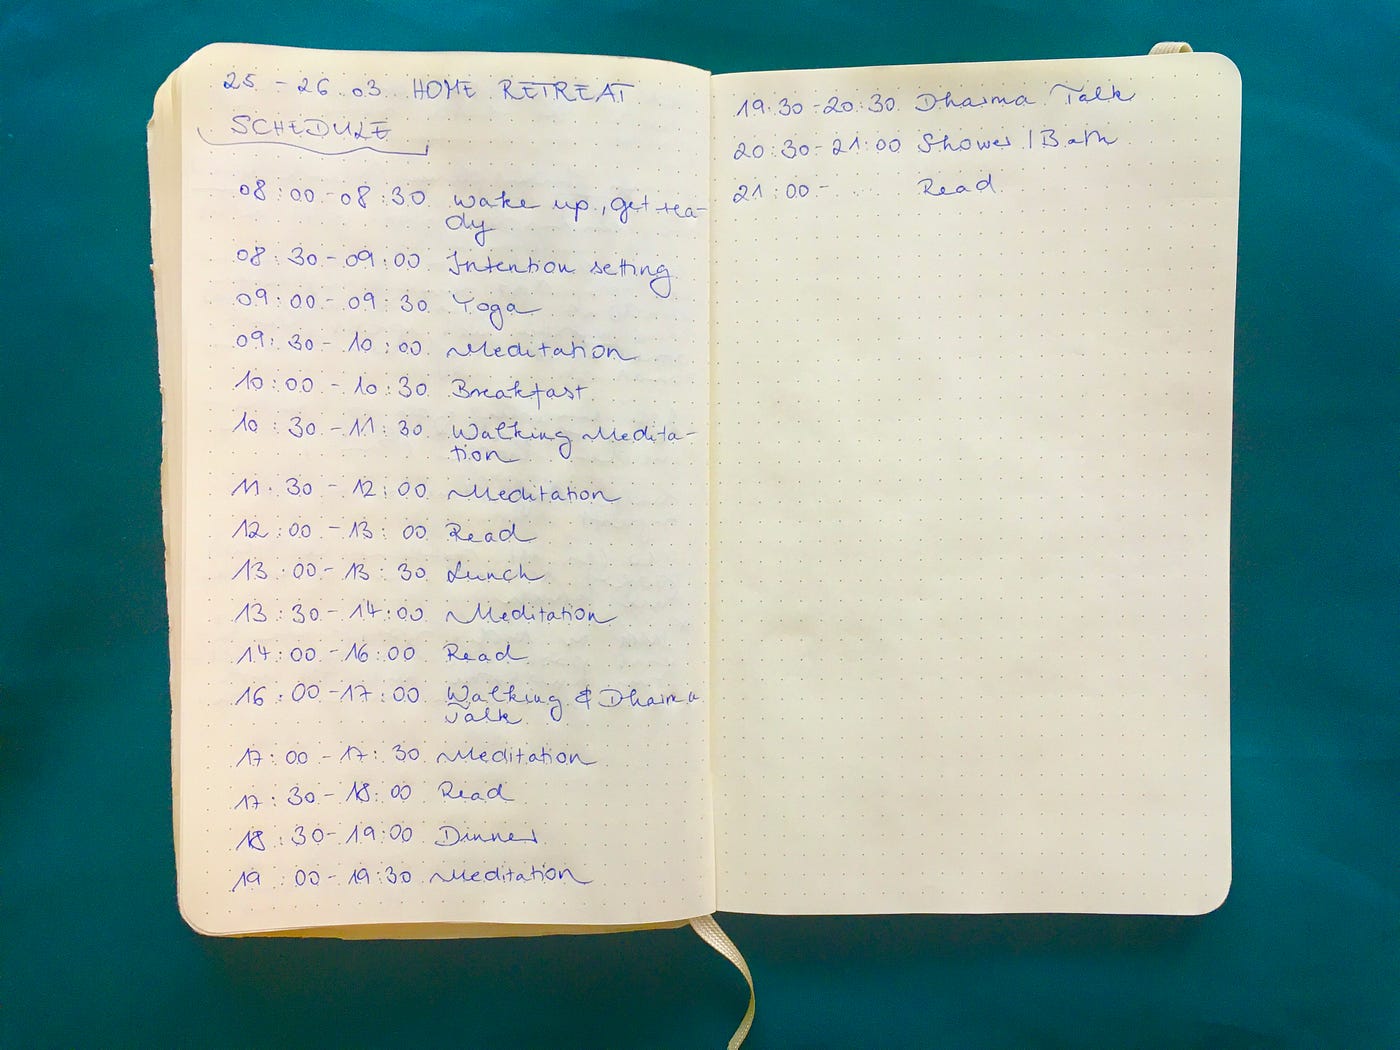 25 - 26.03 HOME RETREAT
SCHEDULE
08:00-08:30 wake up, get rea-
dy
08:30-09:00 Intention setting
09:00-09:30 Yoga
09:30-10:00 Meditation
10:00-10:30 Breakfast
10:30-11:30 Walking Medita-
tion
11:30-12:00 Meditation
12:00-13:00 Read
13:00-13:30 Lunch
13:30-14:00 Meditation
14:00-16:00 Read
16:00-17:00 Walking & Dharma
Talk
17:00-17:30 Meditation
17:30-18:00 Read
18:30-19:00 Dinner
19:00-19:30 Meditation
19:30-20:30 Dharma Talk
20:30-21:00 Shower / Bath
21:00- Read